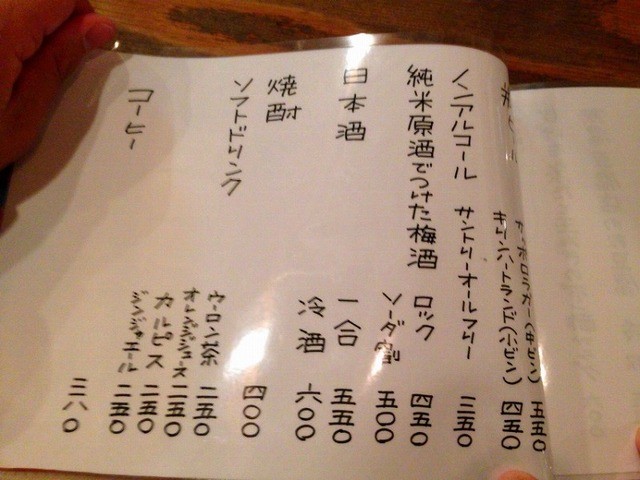 サッポロラガー(中ビン) 五五〇
キリンハートランド(小ビン) 四五〇
ノンアルコール サントリーオールフリー 三五〇
純米原酒でつけた梅酒 ロック 四五〇
ソーダ割 五〇〇
日本酒 一合 五五〇
冷酒 六〇〇
焼酎 四〇〇
ソフトドリンク ウーロン茶 二五〇
オレンジジュース 二五〇
カルピス 二五〇
ジンジャエール 二五〇
コーヒー 三八〇